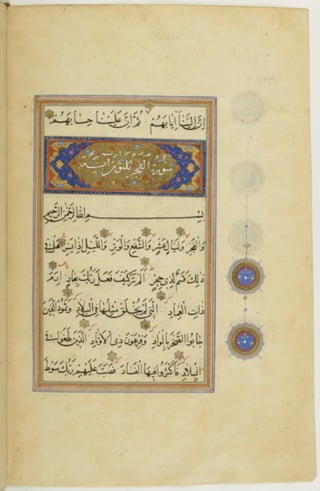 اِنَّ اِلَيْنَا اِيَابَهُمْ ثُمَّ اِنَّ عَلَيْنَا حِسَابَهُمْ
سورة الفجر ثلثون آية
بِسْمِ اللهِ الرَّحْمٰنِ الرَّحِيمِ
وَالْفَجْرِ وَلَيَالٍ عَشْرٍ وَالشَّفْعِ وَالْوَتْرِ وَاللَّيْلِ اِذَا يَسْرِ هَلْ فِي
ذٰلِكَ قَسَمٌ لِذِي حِجْرٍ اَلَمْ تَرَ كَيْفَ فَعَلَ رَبُّكَ بِعَادٍ اِرَمَ
ذَاتِ الْعِمَادِ الَّتِي لَمْ يُخْلَقْ مِثْلُهَا فِي الْبِلَادِ وَثَمُودَ الَّذِينَ
جَابُوا الصَّخْرَ بِالْوَادِ وَفِرْعَوْنَ ذِي الْاَوْتَادِ الَّذِينَ طَغَوْا فِي
الْبِلَادِ فَاَكْثَرُوا فِيهَا الْفَسَادَ فَصَبَّ عَلَيْهِمْ رَبُّكَ سَوْطَ